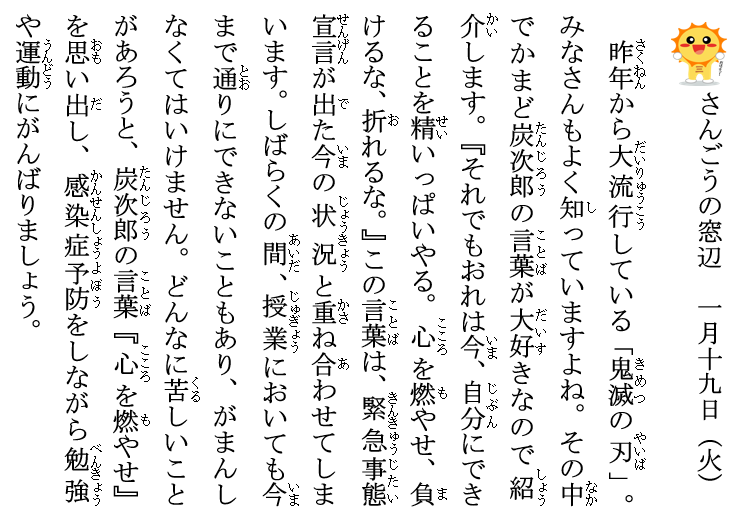 さんごうの窓辺　一月十九日（火）
昨年から大流行している「鬼滅の刃」。
みなさんもよく知っていますよね。その中
でかまど炭次郎の言葉が大好きなので紹
介します。『それでもおれは今、自分にでき
ることを精いっぱいやる。心を燃やせ、負
けるな、折れるな。』この言葉は、緊急事態
宣言が出た今の状況と重ね合わせてしま
います。しばらくの間、授業においても今
まで通りにできないこともあり、がまんし
なくてはいけません。どんなに苦しいこと
があろうと、炭次郎の言葉『心を燃やせ』
を思い出し、感染症予防をしながら勉強
や運動にがんばりましょう。